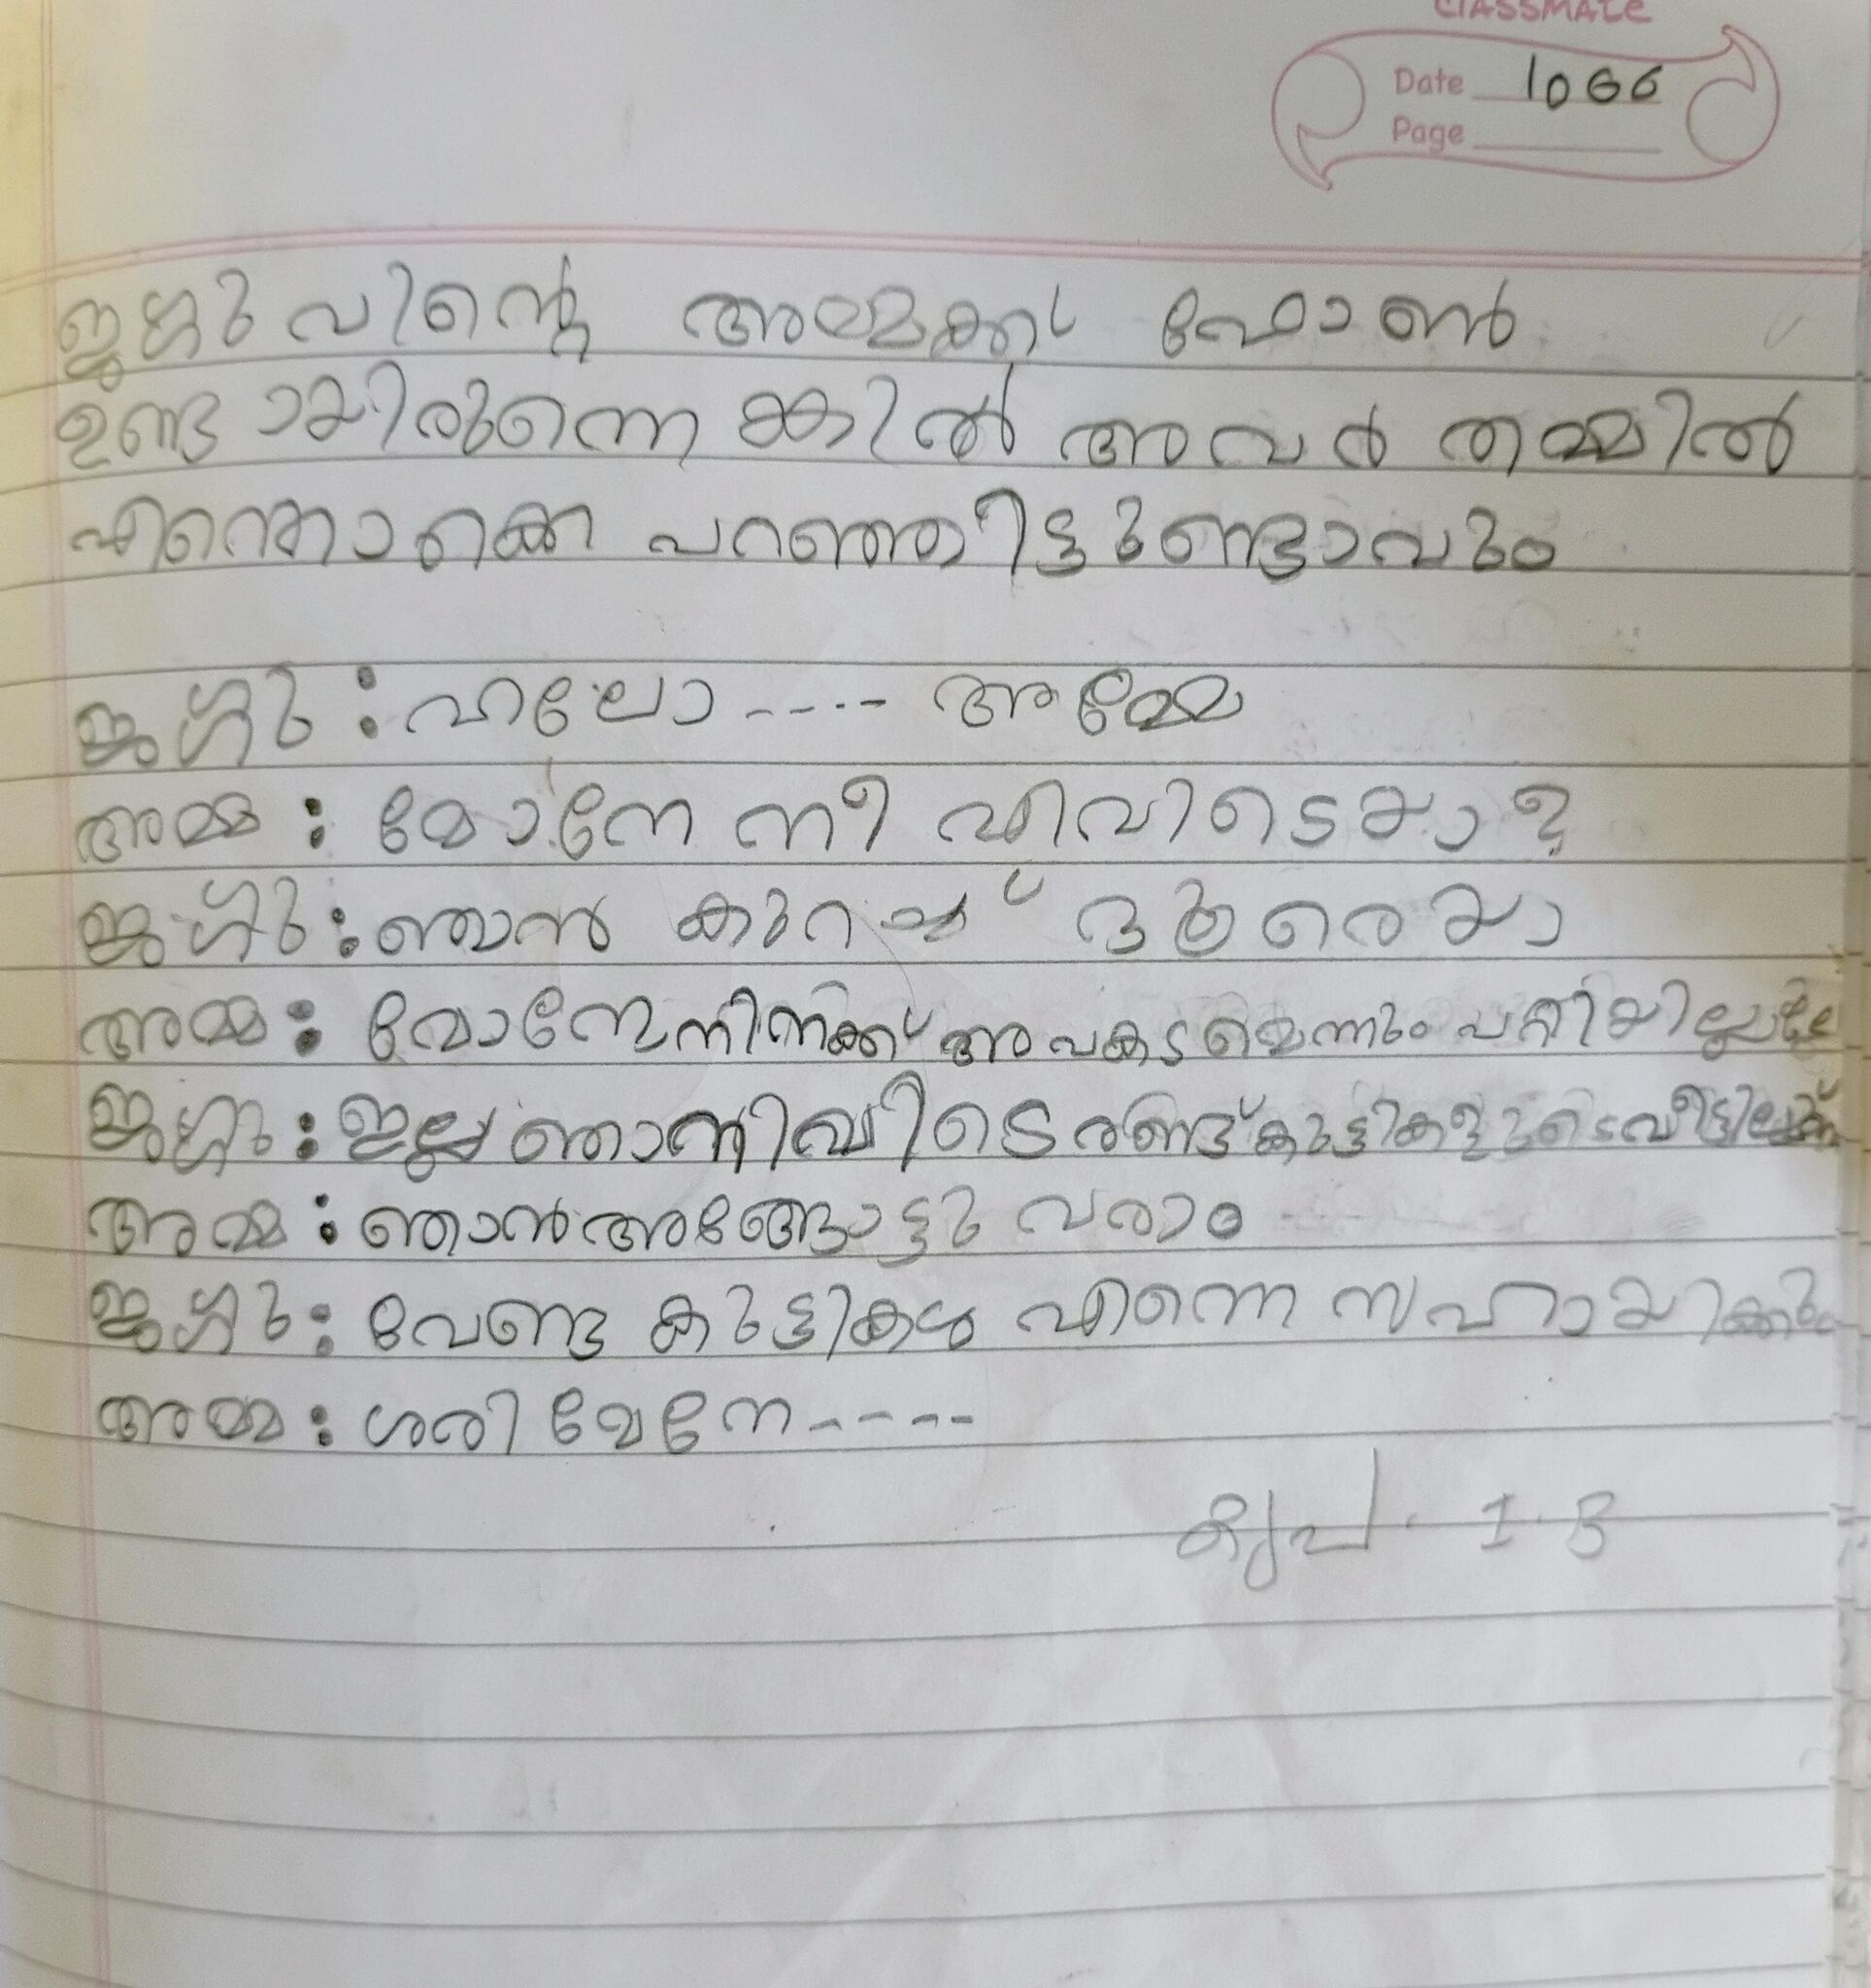 classmate
Date 1066
Page
ജഗ്ഗുവിന്റെ അമ്മക്ക് ഫോൺ
ഉണ്ടായിരുന്നെങ്കിൽ അവർ തമ്മിൽ
എന്തൊക്കെ പറഞ്ഞീട്ടുണ്ടാവും
ജഗ്ഗു : ഹലോ ---- അമ്മേ
അമ്മ : മോനേ നീ എവിടെയാ?
ജഗ്ഗു : ഞാൻ കുറച്ച് ദൂരെയാ
അമ്മ : മോനേ നിനക്ക് അപകടമെന്നും പറ്റിയില്ലല്ലേ
ജഗ്ഗു : ഇല്ല ഞാനിവിടെ രണ്ട് കുട്ടികളുടെ വീട്ടിലാണ്
അമ്മ : ഞാൻ അങ്ങോട്ടു വരാം
ജഗ്ഗു : വേണ്ട കുട്ടികൾ എന്നെ സഹായിക്കും
അമ്മ : ശരി മേനേ ----
1.B